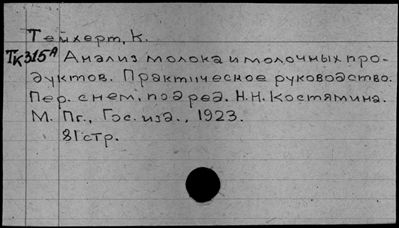 Тейхерт, К.
Тк315А Анализ молока и молочных про-
дуктов. Практическое руководство.
Пер. с нем. под ред. Н.Н. Костямина.
М. Пг., Гос. изд., 1923.
81 стр.